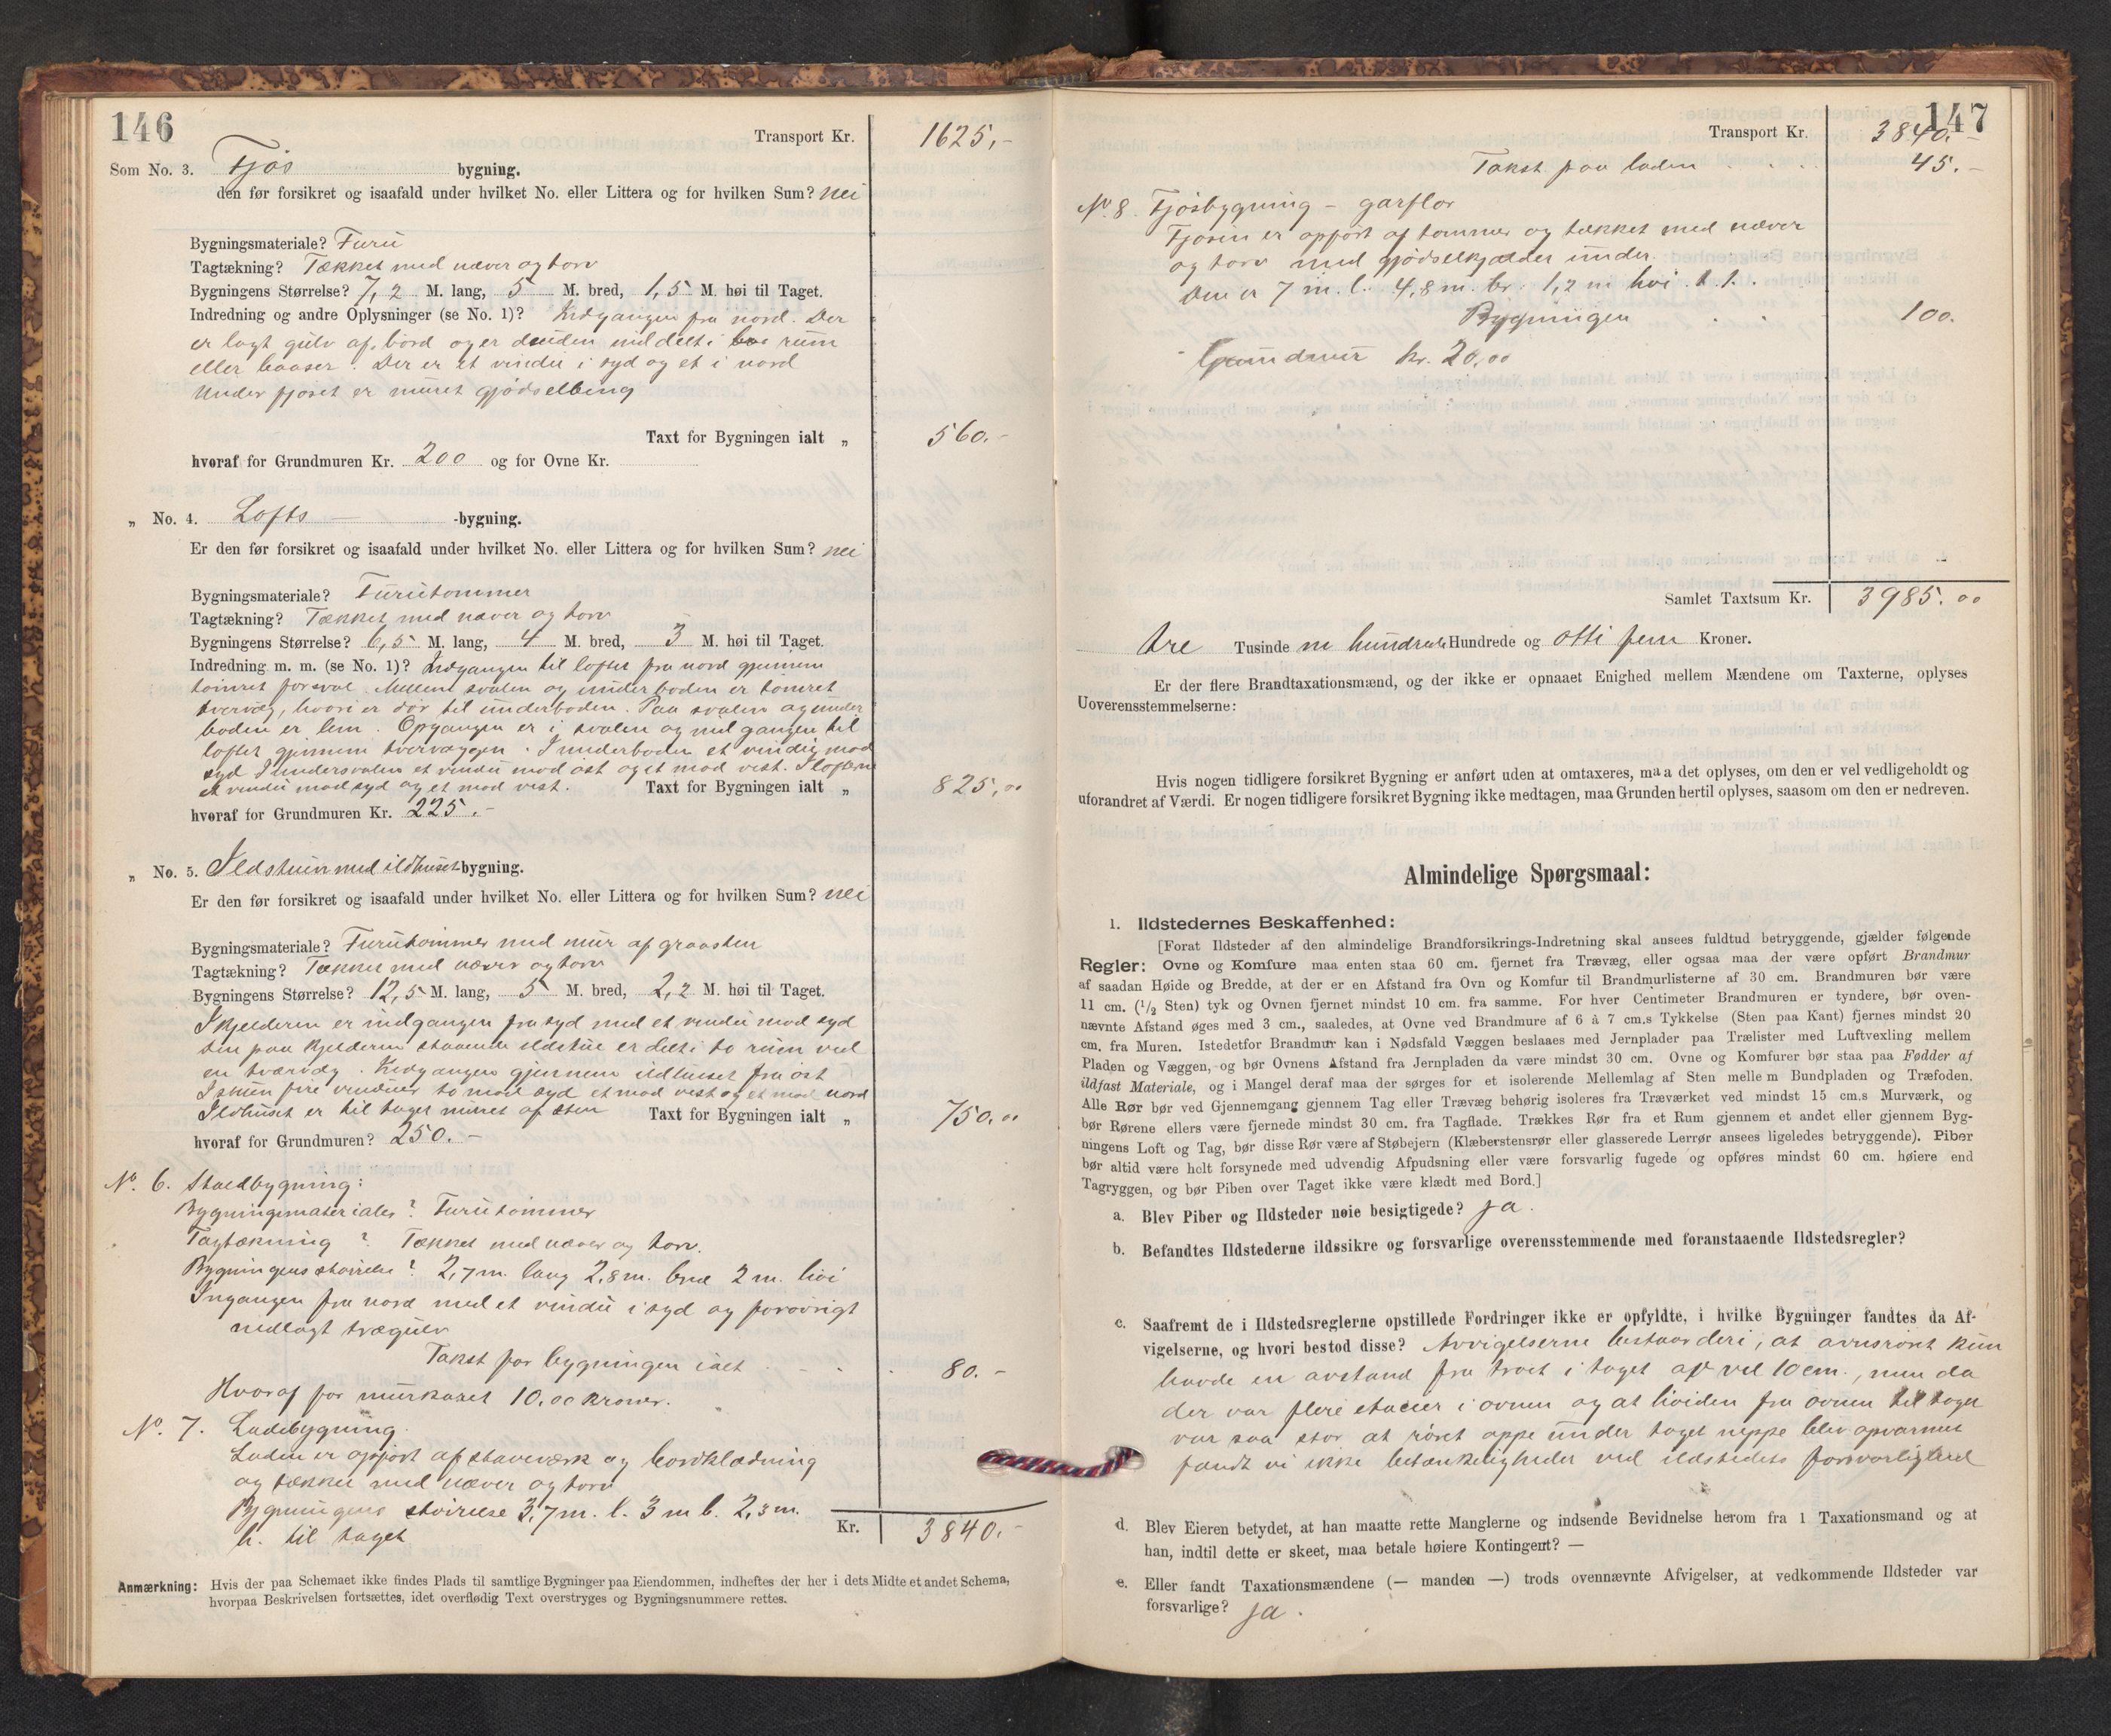 146
Transport Kr. 1625,-
Som No. 3. Fjøs bygning.
den før forsikret og isaafald under hvilket No. eller Littera og for hvilken Sum? nei
Bygningsmateriale? Furu
Tagtækning? Tækket med næver og torv
Bygningens Størrelse? 7,2 M. lang, 5 M. bred, 1,5 M. høi til Taget.
Indredning og andre Oplysninger (se No. 1)? Indgangen fra nord. Der
er lagt gulv af bord og er desuden inddelt i rum
eller baaser. Der er et vindu i syd og et i nord
Under fjøset er muret gjødselbing
Taxt for Bygningen ialt „ 560.-
hvoraf for Grundmuren Kr. 200 og for Ovne Kr.
„ No. 4. Lofts -bygning.
Er den før forsikret og isaafald under hvilket No. eller Littera og for hvilken Sum? nei
Bygningsmateriale? Furutømmer
Tagtækning? Tækket med næver og torv
Bygningens Størrelse? 6,5 M. lang, 4 M. bred, 3 M. høi til Taget.
Indredning m. m. (se No. 1)? Indgangen til loftet fra nord gjennem
tømret forsval. Mellem svalen og underboden er tømret
tvervæg, hvori er dør til underboden. Paa svalen og under
boden er lem. Opgangen er i svalen og indgangen til
loftet gjennem tvervæggen. I underboden et vindu mod
syd I undersvalen et vindu mod øst og et mod vest. I
et vindu mod syd og et mod vest. Taxt for Bygningen ialt „ 825,00
hvoraf for Grundmuren Kr. 225.-
„ No. 5. Ildstuen med ildhuset bygning.
Er den før forsikret og isaafald under hvilket No. eller Littera og for hvilken Sum? nei
Bygningsmateriale? Furutømmer med mur af graasten
Tagtækning? Tækket med næver og torv
Bygningens Størrelse? 12,5 M. lang, 5 M. bred, 2,2 M. høi til Taget.
I kjelderen er indgangen fra syd med et vindu mod syd
Den paa kjelderen staaende ildstue er delt i to rum ved
en tværvæg. Indgangen gjennem ildhuset fra øst
I stuen fire vinduer to mod syd et mod vest og et mod nord
Ildhuset er til taget muret af sten Taxt for Bygningen ialt „ 750.00
hvoraf for Grundmuren? 250.-
No. 6. Staldbygning:
Bygningsmateriale? Furutømmer
Tagtækning? Tækket med næver og torv.
Bygningens størrelse? 2,7 m. lang 2,8 m. bred 2 m. høi
Ingangen fra nord med et vindu i syd og forøvrigt
nedlagt trægulv
Takst for bygningen ialt . . . . 80.-
Hvoraf for murkaset 10,00 kroner.
No. 7. Ladebygning.
Laden er opført af staveværk og bordklædning
og tækket med næver og torv
Bygningens størrelse 3,7 m. l. 3 m b. 2,3 m.
h. til taget
Kr. 3840.-
Anmærkning: Hvis der paa Schemaet ikke findes Plads til samtlige Bygninger paa Eiendommen, indheftes der her i dets Midte et andet Schema,
hvorpaa Beskrivelsen fortsættes, idet overflødig Text overstryges og Bygningsnummere rettes.
147
Transport Kr. 3840.-
Takst paa laden . . . . 45.-
No. 8. Fjøsbygning - garflor
Fjøsen er opført af tømmer og tækket med næver
og torv med gjødselkjælder under.
Den er 7 m. l. 4,8 m. br. 1,2 m høi t. t.
Bygningen . . 100.
Grundmur kr. 20,00
Samlet Taxtsum Kr. 3985.00
tre Tusinde ni hundrede Hundrede og otti fem Kroner.
Er der flere Brandtaxationsmænd, og der ikke er opnaaet Enighed mellem Mændene om Taxterne, oplyses
Uoverensstemmelserne:
Hvis nogen tidligere forsikret Bygning er anført uden at omtaxeres, maa det oplyses, om den er vel vedligeholdt og
uforandret af Værdi. Er nogen tidligere forsikret Bygning ikke medtagen, maa Grunden hertil oplyses, saasom om den er nedreven.
Almindelige Spørgsmaal:
1. Ildstedernes Beskaffenhed:
[Forat Ildsteder af den almindelige Brandforsikrings-Indretning skal ansees fuldtud betryggende, gjælder følgende
Regler: Ovne og Komfure maa enten staa 60 cm. fjernet fra Trævæg, eller ogsaa maa der være opført Brandmur
af saadan Høide og Bredde, at der er en Afstand fra Ovn og Komfur til Brandmurlisterne af 30 cm. Brandmuren bør være
11 cm. (1/2 Sten) tyk og Ovnen fjernet mindst 10 cm. fra samme. For hver Centimeter Brandmuren er tyndere, bør oven-
nævnte Afstand øges med 3 cm., saaledes, at Ovne ved Brandmure af 6 à 7 cm.s Tykkelse (Sten paa Kant) fjernes mindst 20
cm. fra Muren. Istedetfor Brandmur kan i Nødsfald Væggen beslaaes med Jernplader paa Trælister med Luftvexling mellem
Pladen og Væggen, og bør Ovnens Afstand fra Jernpladen da være mindst 30 cm. Ovne og Komfurer bør staa paa Fødder af
ildfast Materiale, og i Mangel deraf maa der sørges for et isolerende Mellemlag af Sten mellem Bundpladen og Træfoden.
Alle Rør bør ved Gjennemgang gjennem Tag eller Trævæg behørig isoleres fra Træværket ved mindst 15 cm.s Murværk, og
bør Rørene ellers være fjernede mindst 30 cm. fra Tagflade. Trækkes Rør fra et Rum gjennem et andet eller gjennem Byg-
ningens Loft og Tag, bør disse Rør være af Støbejern (Klæberstensrør eller glasserede Lerrør ansees ligeledes betryggende). Piber
bør altid være helt forsynede med udvendig Afpudsning eller være forsvarlig fugede og opføres mindst 60 cm. høiere end
Tagryggen, og bør Piben over Taget ikke være klædt med Bord.]
a. Blev Piber og Ildsteder nøie besigtigede? ja.
b. Befandtes Ildstederne ildssikre og forsvarlige overensstemmende med foranstaaende Ildstedsregler?
c. Saafremt de i Ildstedsreglerne opstillede Fordringer ikke er opfyldte, i hvilke Bygninger fandtes da Af-
vigelserne, og hvori bestod disse? Avvigelserne bestaar deri, at ovnsrøret kun
havde en avstand fra træet i taget af vel 10 cm., men da
der var flere etacier i ovnen og at høiden fra ovnen til taget
var saa stor at røret oppe under taget neppe blev opvarmet
fandt vi ikke betænkeligheder ved ildstedets forsvarlighed
d. Blev Eieren betydet, at han maatte rette Manglerne og indsende Bevidnelse herom fra 1 Taxationsmand og at
han, indtil dette er skeet, maa betale høiere Kontingent? —
e. Eller fandt Taxationsmændene (— manden —) trods ovennævnte Afvigelser, at vedkommende Ildsteder var
forsvarlige? ja.